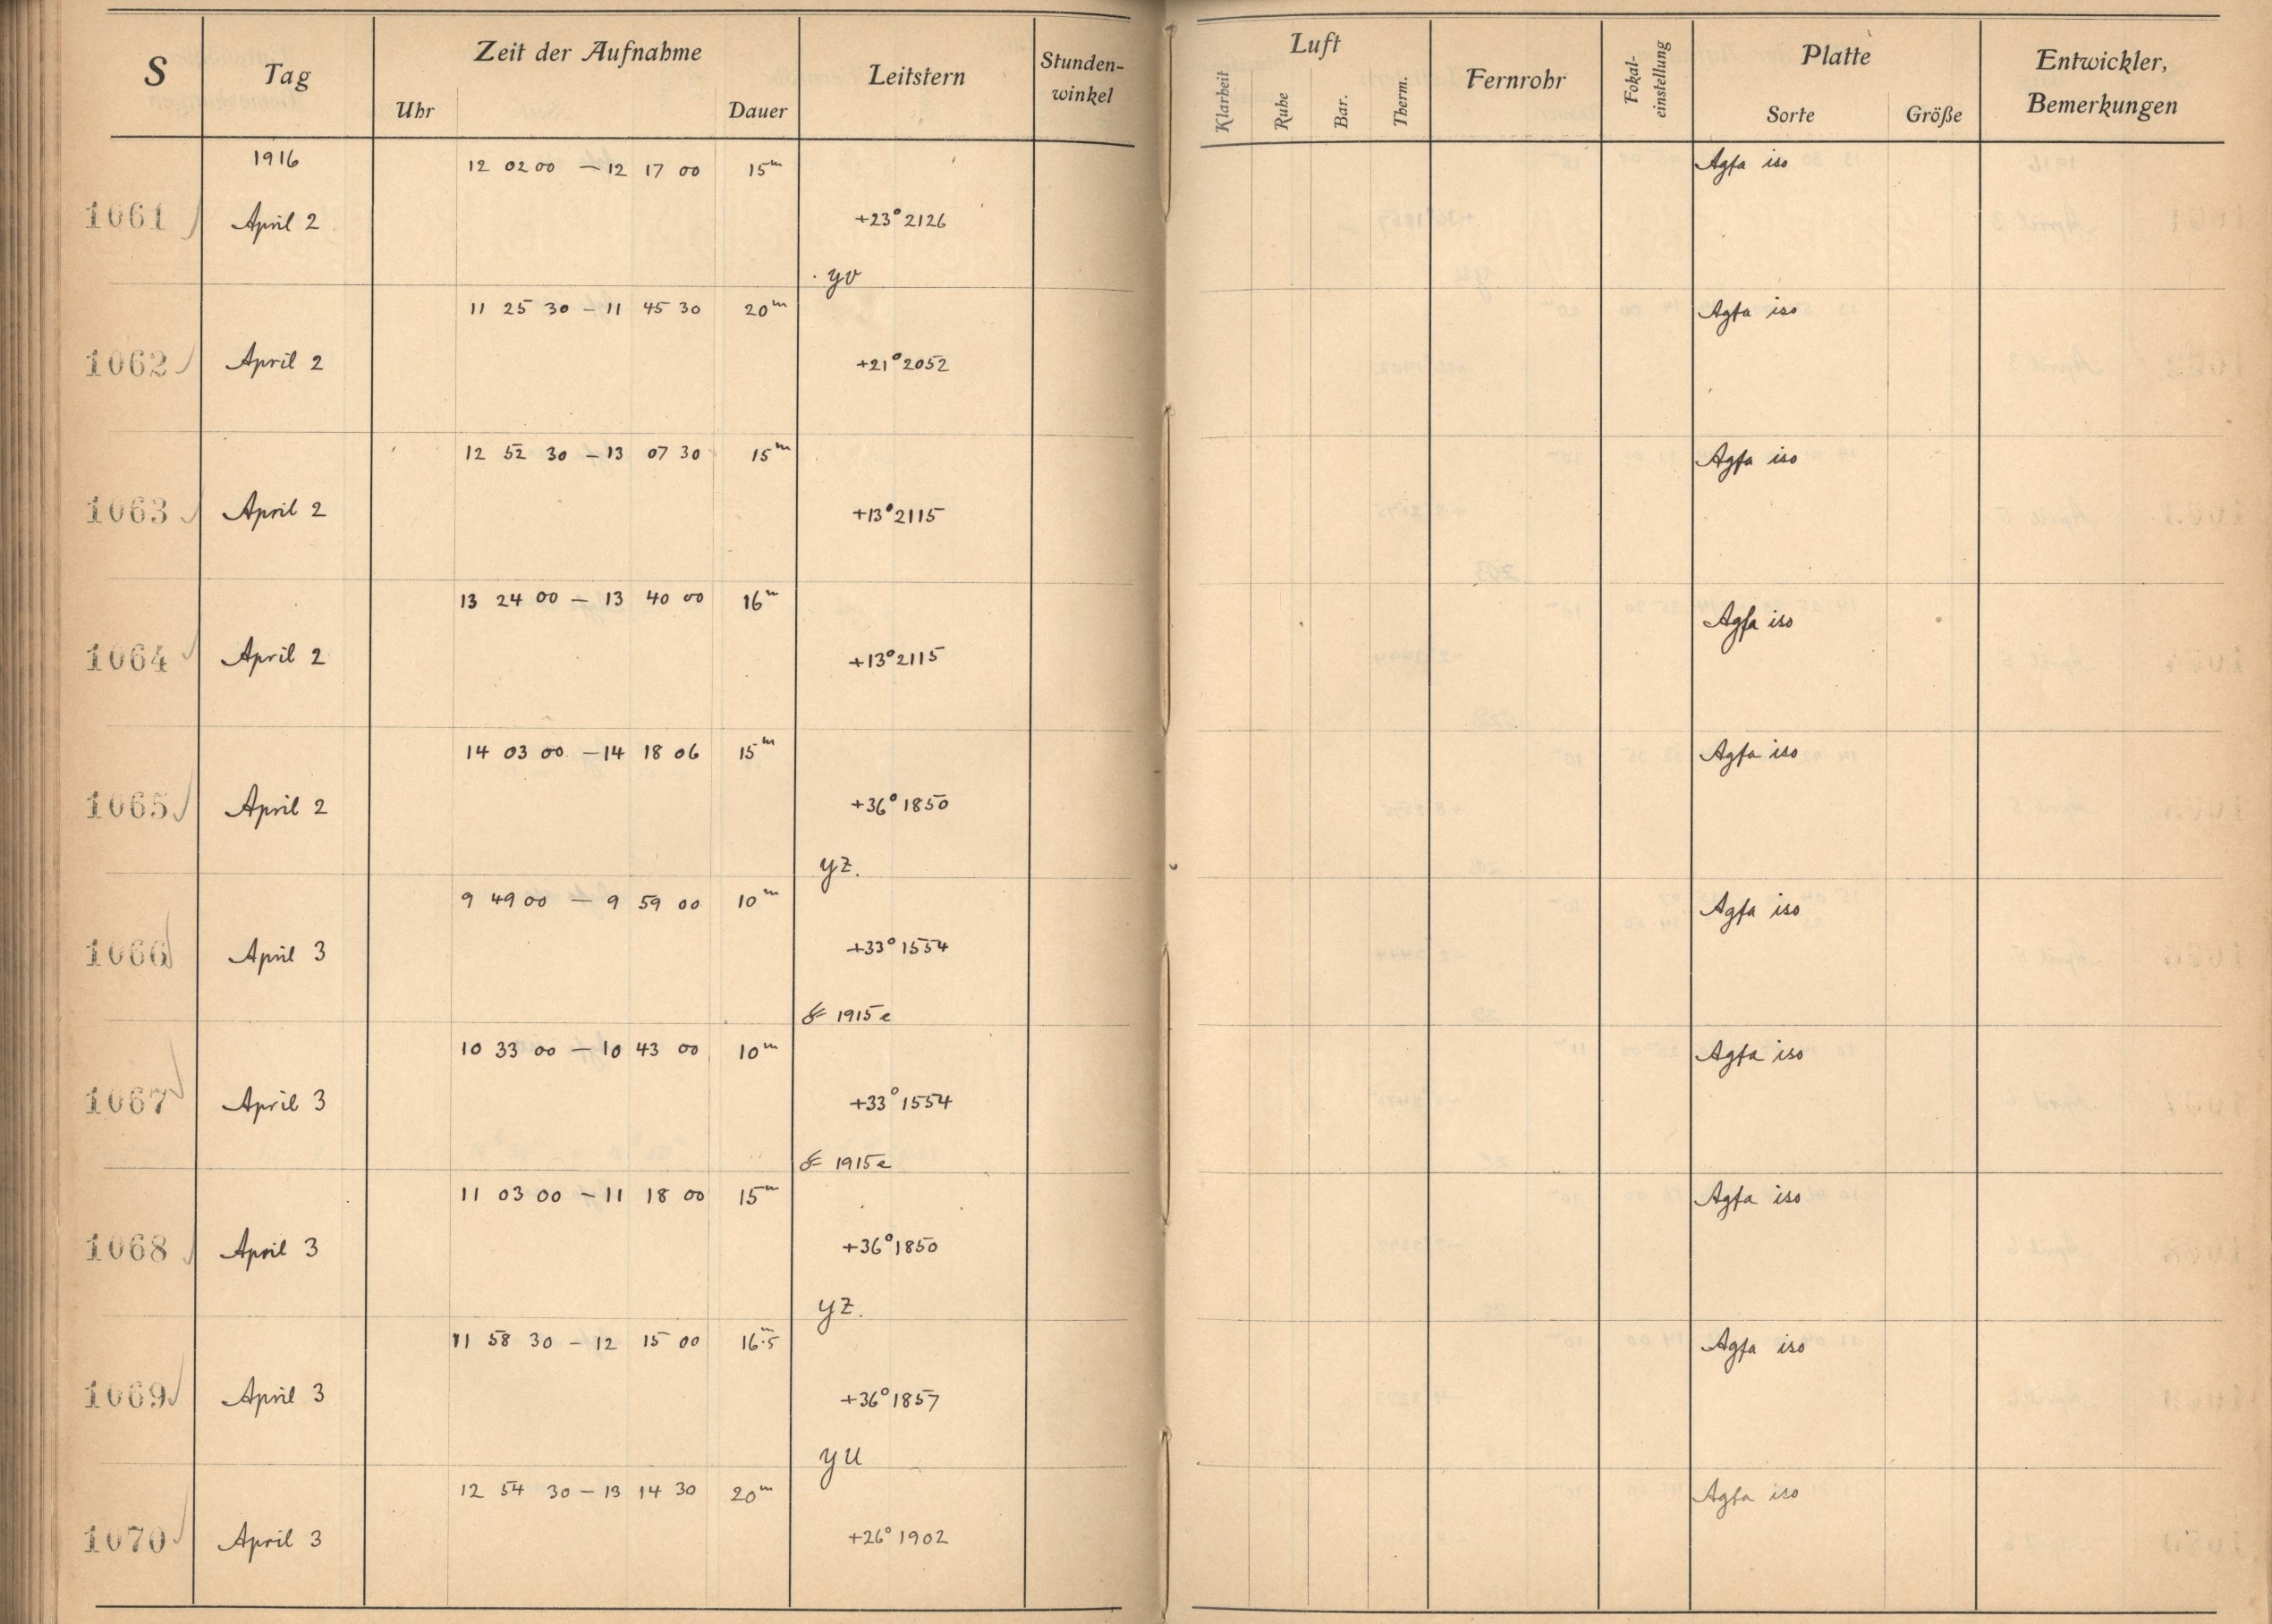 S Tag Zeit der Aufnahme Leitstern Stunden-winkel Luft Fernrohr Fokal-einstellung Platte Entwickler, Bemerkungen
Uhr Dauer Klarheit Ruhe Bar. Therm. Sorte Größe
1916 12 02 00 — 12 17 00 15m Agfa iso
1061 April 2 +23° 2126
yv
11 25 30 — 11 45 30 20m Agfa iso
1062 April 2 +21° 2052
12 52 30 — 13 07 30 15m Agfa iso
1063 April 2 +13° 2115
13 24 00 — 13 40 00 16m Agfa iso
1064 April 2 +13° 2115
14 03 00 — 14 18 06 15m Agfa iso
1065 April 2 +36° 1850
yz.
9 49 00 — 9 59 00 10m Agfa iso
1066 April 3 +33° 1554
☄ 1915 e
10 33 00 — 10 43 00 10m Agfa iso
1067 April 3 +33° 1554
☄ 1915 e
11 03 00 — 11 18 00 15m Agfa iso
1068 April 3 +36° 1850
yz.
11 58 30 — 12 15 00 16m.5 Agfa iso
1069 April 3 +36° 1857
yu
12 54 30 — 13 14 30 20m Agfa iso
1070 April 3 +26° 1902